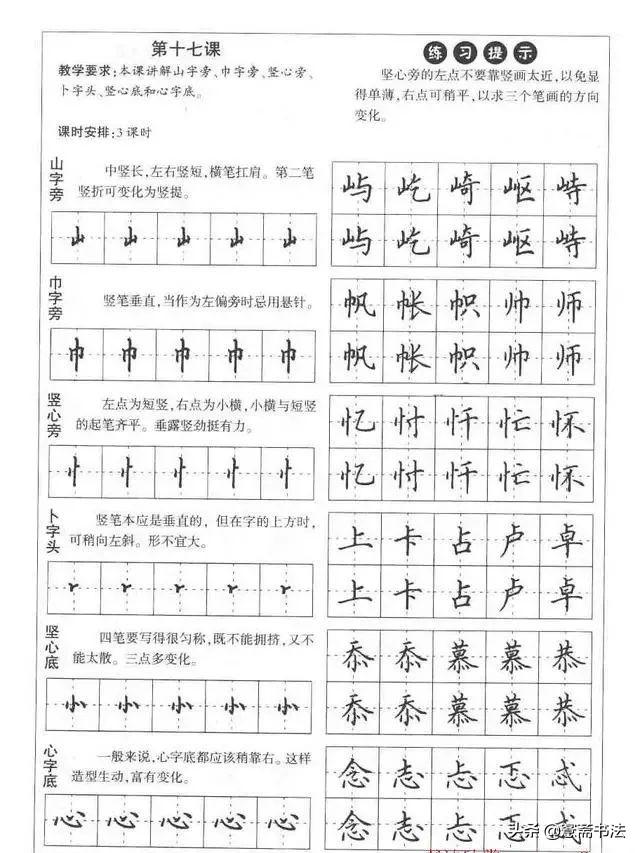 第十七课
教学要求:本课讲解山字旁、巾字旁、竖心旁、
卜字头、竖心底和心字底。
课时安排:3课时
练习提示
竖心旁的左点不要靠竖画太近,以免显
得单薄,右点可稍平,以求三个笔画的方向
变化。
山字旁
中竖长,左右竖短,横笔扛肩。第二笔
竖折可变化为竖提。
山 山 山 山 山
屿 屹 崎 岖 峙
屿 屹 崎 岖 峙
巾字旁
竖笔垂直,当作为左偏旁时忌用悬针。
巾 巾 巾 巾 巾
帆 帐 帜 帅 师
帆 帐 帜 帅 师
竖心旁
左点为短竖,右点为小横,小横与短竖
的起笔齐平。垂露竖劲挺有力。
忄 忄 忄 忄 忄
忆 忖 忏 忙 怀
忆 忖 忏 忙 怀
卜字头
竖笔本应是垂直的,但在字的上方时,
可稍向左斜。形不宜大。
上 卡 占 卢 卓
上 卡 占 卢 卓
竖心底
四笔要写得很匀称,既不能拥挤,又不
能太散。三点多变化。
⺗ ⺗ ⺗ ⺗ ⺗
忝 忝 慕 慕 恭
忝 忝 慕 慕 恭
心字底
一般来说,心字底都应该稍靠右。这样
造型生动,富有变化。
心 心 心 心 心
念 志 忐 忑 忒
念 志 忐 忑 忒
头条@壹斋书法